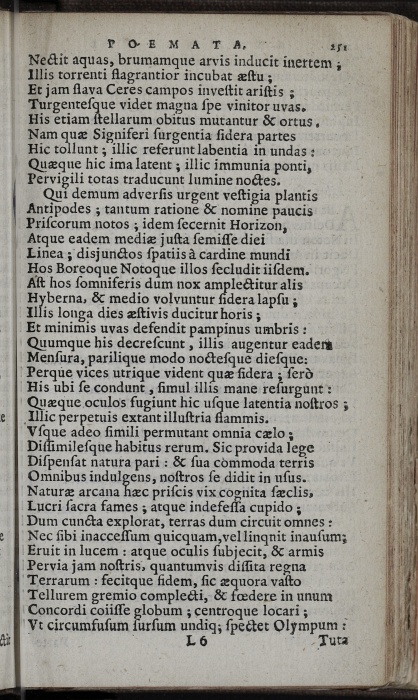 POEMATA. 251
Nectit aquas, brumamque arvis inducit inertem ;
Illis torrenti flagrantior incubat æstu ;
Et jam flava Ceres campos investit aristis ;
Turgentesque videt magna spe vinitor uvas.
His etiam stellarum obitus mutantur & ortus.
Nam quæ Signiferi surgentia sidera partes
Hic tollunt ; illic referunt labentia in undas :
Quæque hic ima latent ; illic immunia ponti,
Pervigili totas traducunt lumine noctes.
Qui demum adversis urgent vestigia plantis
Antipodes ; tantum ratione & nomine paucis
Priscorum notos ; idem secernit Horizon,
Atque eadem mediæ justa semisse diei
Linea ; disjunctos spatiis à cardine mundi
Hos Boreoque Notoque illos secludit iisdem.
Ast hos somniferis dum nox amplectitur alis
Hyberna, & medio volvuntur sidera lapsu ;
Illis longa dies æstivis ducitur horis ;
Et minimis uvas defendit pampinus umbris :
Quumque his decrescunt, illis augentur eadem
Mensura, parilique modo noctesque diesque:
Perque vices utrique vident quæ sidera ; serò
His ubi se condunt, simul illis mane resurgunt :
Quæque oculos fugiunt hic usque latentia nostros ;
Illic perpetuis extant illustria flammis.
Vsque adeo simili permutant omnia cælo ;
Dissimilesque habitus rerum. Sic provida lege
Dispensat natura pari : & sua commoda terris
Omnibus indulgens, nostros se didit in usus.
Naturæ arcana hæc priscis vix cognita sæclis,
Lucri sacra fames ; atque indefessa cupido ;
Dum cuncta explorat, terras dum circuit omnes :
Nec sibi inaccessum quicquam, vel linqnit inausum;
Eruit in lucem : atque oculis subjecit, & armis
Pervia jam nostris, quantumvis dissita regna
Terrarum : fecitque fidem, sic æquora vasto
Tellurem gremio complecti, & fœdere in unum
Concordi coiisse globum ; centroque locari ;
Vt circumfusum sursum undiq; spectet Olympum :
L 6 Tuta